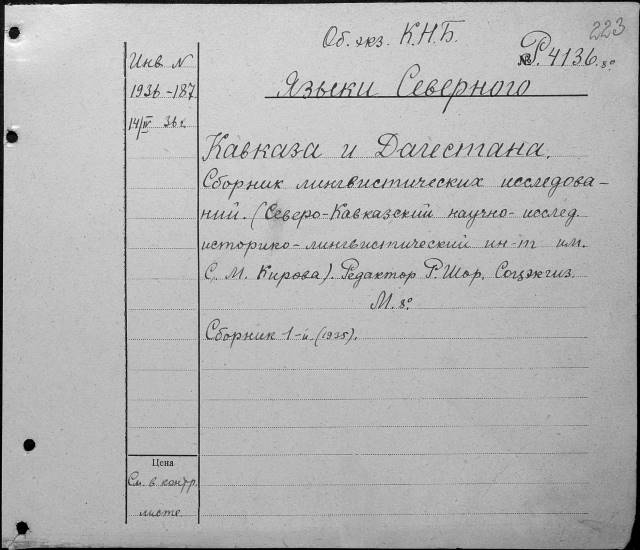 223
Об. экз. К.Н.Б.
№ Р. 4136. 8°
Инв N
1936-187
14/IV 36 г.
Языки Северного
Кавказа и Дагестана.
Сборник лингвистических исследова-
ний. (Северо-Кавказский научно-исслед.
историко-лингвистический ин-т им.
С. М. Кирова). Редактор Р. Шор. Соцэкгиз.
М. 8°
Сборник 1-й. (1935).
Цена
См. в контр.
листе.